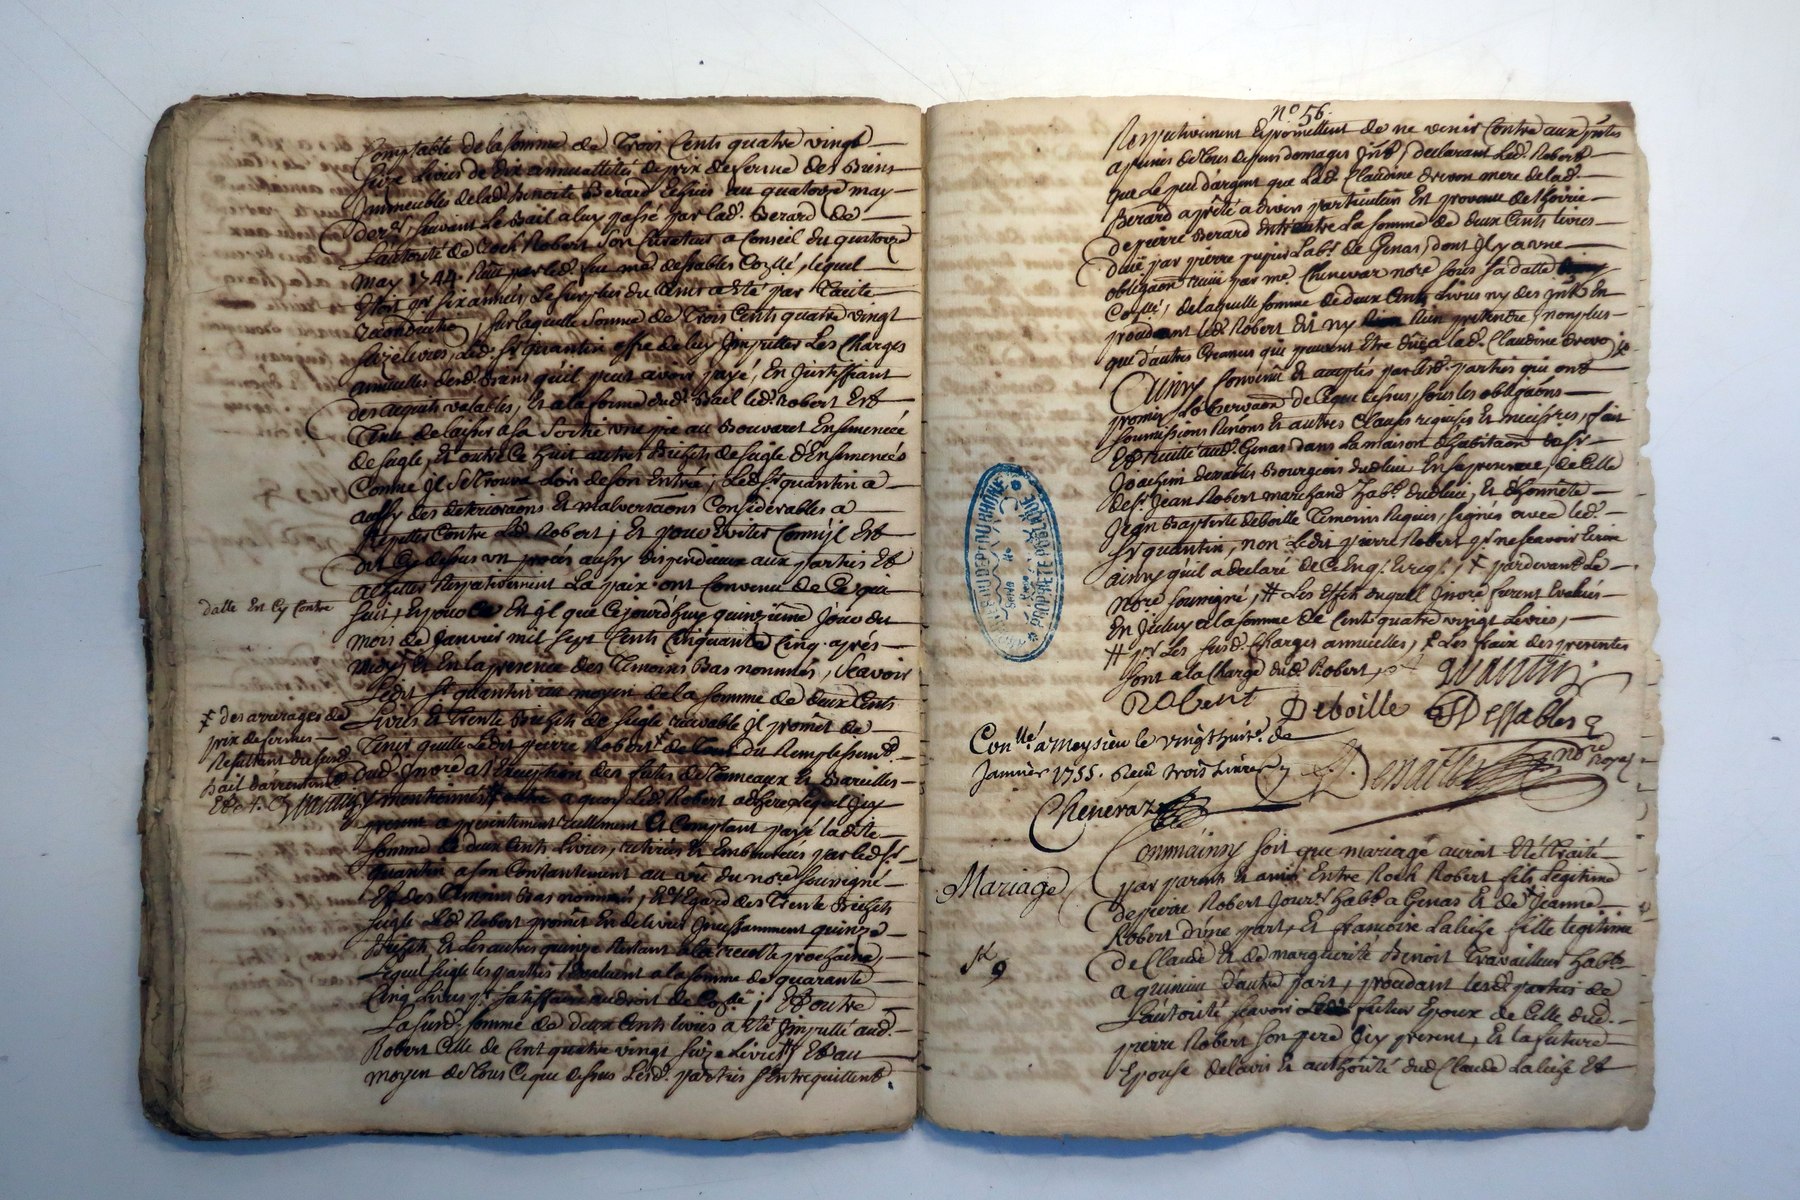 Comptable de la somme de Trois Cents quatre vingt
seize Livres de dix annuattités de prix de ferme des Biens
Immeubles de lad. Benoite Berard Echus au quatorze may
der.r, suivant Le Bail a luy passé par lad. Berard de
L'autorité de Roch Robert son Curateur a Conseil du quatorze
may 1744. Reçu par led. feu me. dessables Coll.é, lequel
Etoit pr. six années, Le surplus du tems a Eté par tacite
reconduite, sur laquelle somme de Trois Cents quatre vingt
seize livres, led. Sr. quantin offre de luy Imputter Les Charges
annuelles desd. Biens qu'il peut avoir payé, En Justiffiant
des acquits valables, Et a la forme dud. Bail led. Robert Est
Tenu de laisser a sa Sortie une pie au Bouvaret Ensemencée
de seigle, Et outre Ce huit autres Bichets de seigle d'Ensemencés
Comme Il se trouva Lor de son Entrée, Led. Sr. quantin a
aussy des deteriora͠ons Et malversa͠ons Considérables a
repetter Contre Led. Robert, Et pour Eviter Comm'jl Est
dit Cy dessus un procés aussy dispendieux aux parties Et
achetter Respectivement La paix ont Convenu de Ce qui
datte En Cy Contre
suit, En Il que Ce jourd'huy quinzieme Jour du
mois de Janvier mil sept Cents Cinquante Cinq aprés
midy Et En la presence des Temoins Bas nommés, sçavoir
Ledit Sr. quantin au moyen de la somme de deux Cents
ҟ des arrerages de
prix de fermes
Resultant du susd.
bail d'arrentem.t
Livres Et Trente Bichets de seigle recevable Il promet de
Tenir quitte Ledit pierre Robert de tout du Remplessemt.
dud. Inre. a l'Exception des futes de Tonneaux Et Bareilles
a quoy Led. Robert adhere lequel Icy
present a presentement reellement Et Comptant payé ladite
somme de deux Cents Livres, retirées Et Emboursées par led. Sr.
quantin a son Contantement au vû du nore. soussigné
Et des Temoins Bas nommés, Et a l'Egard des Trente Bichets
seigle Led. Robert promet En delivrer Incessamment quinze
Bichets Et Les autres quinze Restant a la recolte prochaine,
Lequel seigle les parties Evaluent a la somme de quarante
Cinq Livres pr. satisfaire au droit de Co.lle ; Et outre
La susd. somme de deux Cents livres a Eté Imputté aud.
Robert Celle de Cent quatre vingt seize Livres Et au
moyen de tous Ce que dessus Lesd. parties s'Entrequittent
No. 56.
Respectivement Et promettent de ne venir Contre aux pntes
a peines de tous depens domages Intt, declarant Led. Robert
que Le peu d'argent que Lad. Claudine drevon mere de lad.
Berard a prêté a divers particuliers Est provenu de l'hoirie
de pierre Berard Entr'autre La somme de deux Cents livres
duë par pierre pupier Labr. de Genas, dont Il y a une
obliga͠on reçuë par me. Cheneraz nore sous sa datte
Coll.é, de laquelle somme de deux Cents Livres ny des Intt. En
procedant led. Robert dit ny Rien prettendre, non plus
que d'autres Creances qui peuvent Etre düës a lad. Claudine drevon,
Ainsy Convenu Et acceptés par lesd. parties qui ont
promis L'observa͠on de Ce que dessus, sous les obliga͠ons
soumissions Renons Et autres Clauses requises Et necess.res, fait
Et recitté aud. Genas dans La maison d'habita͠on de Sr.
Joachim dessables Bourgeois dud. lieu En sa presence, de Celle
de Sr. Jean Robert marchand hab.t dud. lieu, Et d'honnête
Jean Baptiste deboille Temoins Requis, signés avec led.
Sr. quantin, non Ledit pierre Robert pr. ne sçavoir Ecrire
ainsy qu'il a declaré de Ce Enq. Et reqt., ҟ pardevant Le
nore souss.igné, # Les Effets duquel Inre furent Evalués
En Jceluy a la somme de Cents quatre vingt Livres,
# pr. Les susd. Charges annuelles, ҟ Les fraix des presentes
sont a la Charge dud. Robert,
Quantin
Robert Deboille Dessables
Con.llé a Meyzieu le vingt huit.e de
Janvier 1755. Reçu trois Livres
Cheneraz
Dessables nore Royal
Mariage
Comm'ainsy soit que mariage auroit Eté traité
par parents Et amis Entre Roch Robert fils Legitime
de pierre Robert Jour.r habt. a Genas Et de Jeanne
Robert d'une part, Et francoise Labize fille legitime
de Claude Et de marguerite Benoit travailleur habt.
a d'autre part, procedant lesd. parties de
L'autorité, sçavoir Led. futur Epoux de Celle dud.
pierre Robert son pere Icy present, Et la future
Epouse de l'avis Et authorité dud. Claude Labize Et
PROPRIETE PUBLIQUE